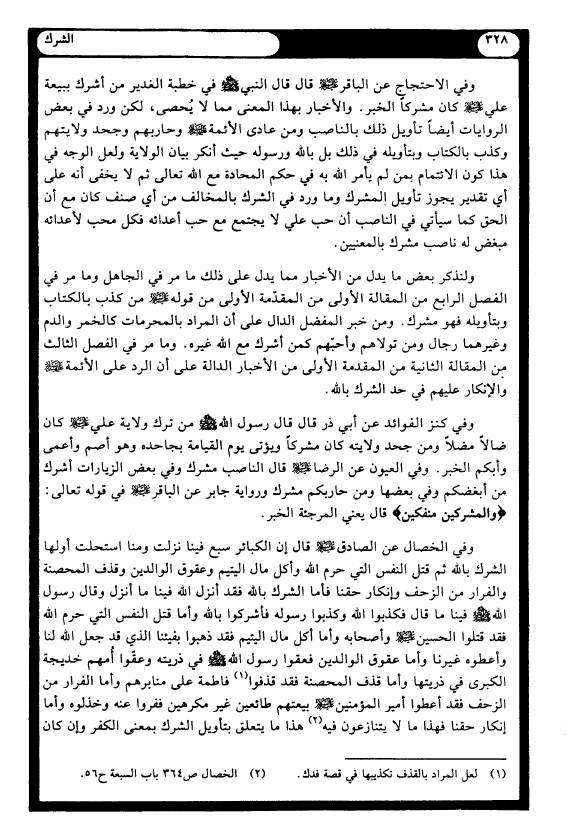 ٣٢٨
الشرك
وفي الاحتجاج عن الباقر ﷺ قال قال النبي ﷺ في خطبة الغدير من أشرك ببيعة
علي ﷺ كان مشركاً الخبر. والأخبار بهذا المعنى مما لا يُحصى، لكن ورد في بعض
الروايات أيضاً تأويل ذلك بالناصب ومن عادى الأئمة ﷺ وحاربهم وجحد ولايتهم
وكذب بالكتاب وبتأويله في ذلك بل بالله ورسوله حيث أنكر بيان الولاية ولعل الوجه في
هذا كون الائتمام بمن لم يأمر الله به في حكم المحادة مع الله تعالى ثم لا يخفى أنه على
أي تقدير يجوز تأويل المشرك وما ورد في الشرك بالمخالف من أي صنف كان مع أن
الحق كما سيأتي في الناصب أن حب علي لا يجتمع مع حب أعدائه فكل محب لأعدائه
مبغض له ناصب مشرك بالمعنيين.
ولنذكر بعض ما يدل من الأخبار مما يدل على ذلك ما مر في الجاهل وما مر في
الفصل الرابع من المقالة الأولى من المقدّمة الأولى من قوله ﷺ من كذب بالكتاب
وبتأويله فهو مشرك. ومن خبر المفضل الدال على أن المراد بالمحرمات كالخمر والدم
وغيرهما رجال ومن تولاهم وأحبّهم كمن أشرك مع الله غيره. وما مر في الفصل الثالث
من المقالة الثانية من المقدمة الأولى من الأخبار الدالة على أن الرد على الأئمة ﷺ
والإنكار عليهم في حد الشرك بالله.
وفي كنز الفوائد عن أبي ذر قال قال رسول الله ﷺ من ترك ولاية علي ﷺ كان
ضالاً مضلاً ومن جحد ولايته كان مشركاً ويؤتى يوم القيامة بجاحده وهو أصم وأعمى
وأبكم الخبر. وفي العيون عن الرضا ﷺ قال الناصب مشرك وفي بعض الزيارات أشرك
من أبغضكم وفي بعضها ومن حاربكم مشرك ورواية جابر عن الباقر ﷺ في قوله تعالى:
﴿والمشركين منفكين﴾ قال يعني المرجئة الخبر.
وفي الخصال عن الصادق ﷺ قال إن الكبائر سبع فينا نزلت ومنا استحلت أولها
الشرك بالله ثم قتل النفس التي حرم الله وأكل مال اليتيم وعقوق الوالدين وقذف المحصنة
والفرار من الزحف وإنكار حقنا فأما الشرك بالله فقد أنزل الله فينا ما أنزل وقال رسول
الله ﷺ فينا ما قال فكذبوا الله وكذبوا رسوله فأشركوا بالله وأما قتل النفس التي حرم الله
فقد قتلوا الحسين ﷺ وأصحابه وأما أكل مال اليتيم فقد ذهبوا بفيئنا الذي قد جعل الله لنا
وأعطوه غيرنا وأما عقوق الوالدين فعقوا رسول الله ﷺ في ذريته وعقّوا أُمهم خديجة
الكبرى في ذريتها وأما قذف المحصنة فقد قذفوا(١) فاطمة على منابرهم وأما الفرار من
الزحف فقد أعطوا أمير المؤمنين ﷺ بيعتهم طائعين غير مكرهين ففروا عنه وخذلوه وأما
إنكار حقنا فهذا ما لا يتنازعون فيه(٢) هذا ما يتعلق بتأويل الشرك بمعنى الكفر وإن كان
(١) لعل المراد بالقذف تكذيبها في قصة فدك. (٢) الخصال ص٣٦٤ باب السبعة ح٥٦.